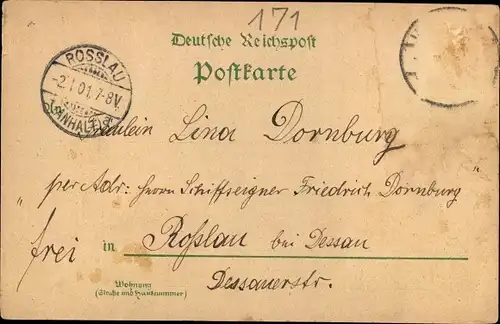 171
Deutsche Reichspost
Postkarte
ROSSLAU
-2.1.01.7-8V.
(ANHALT)
Fräulein Lina Dornburg
"per Adr: Herrn Schiffseigner Friedrich Dornburg"
frei in Roßlau bei Dessau
Dessauerstr.
Wohnung
(Straße und Hausnummer)